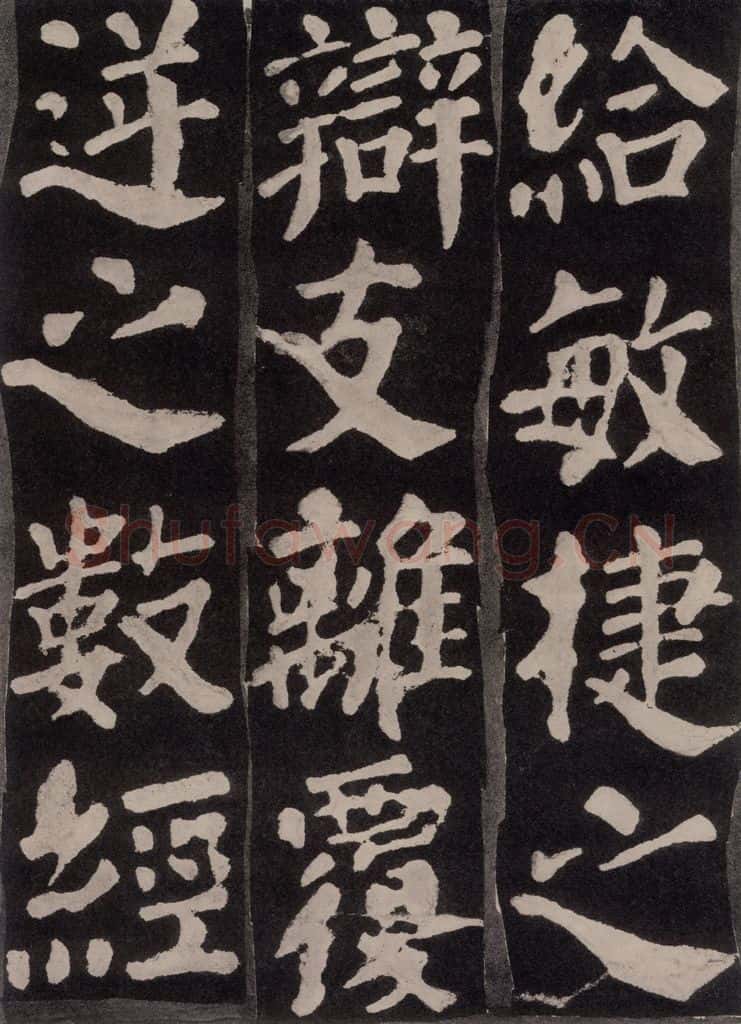 給敏捷之
辯支離覆
逆之數經
Shufawang.CN